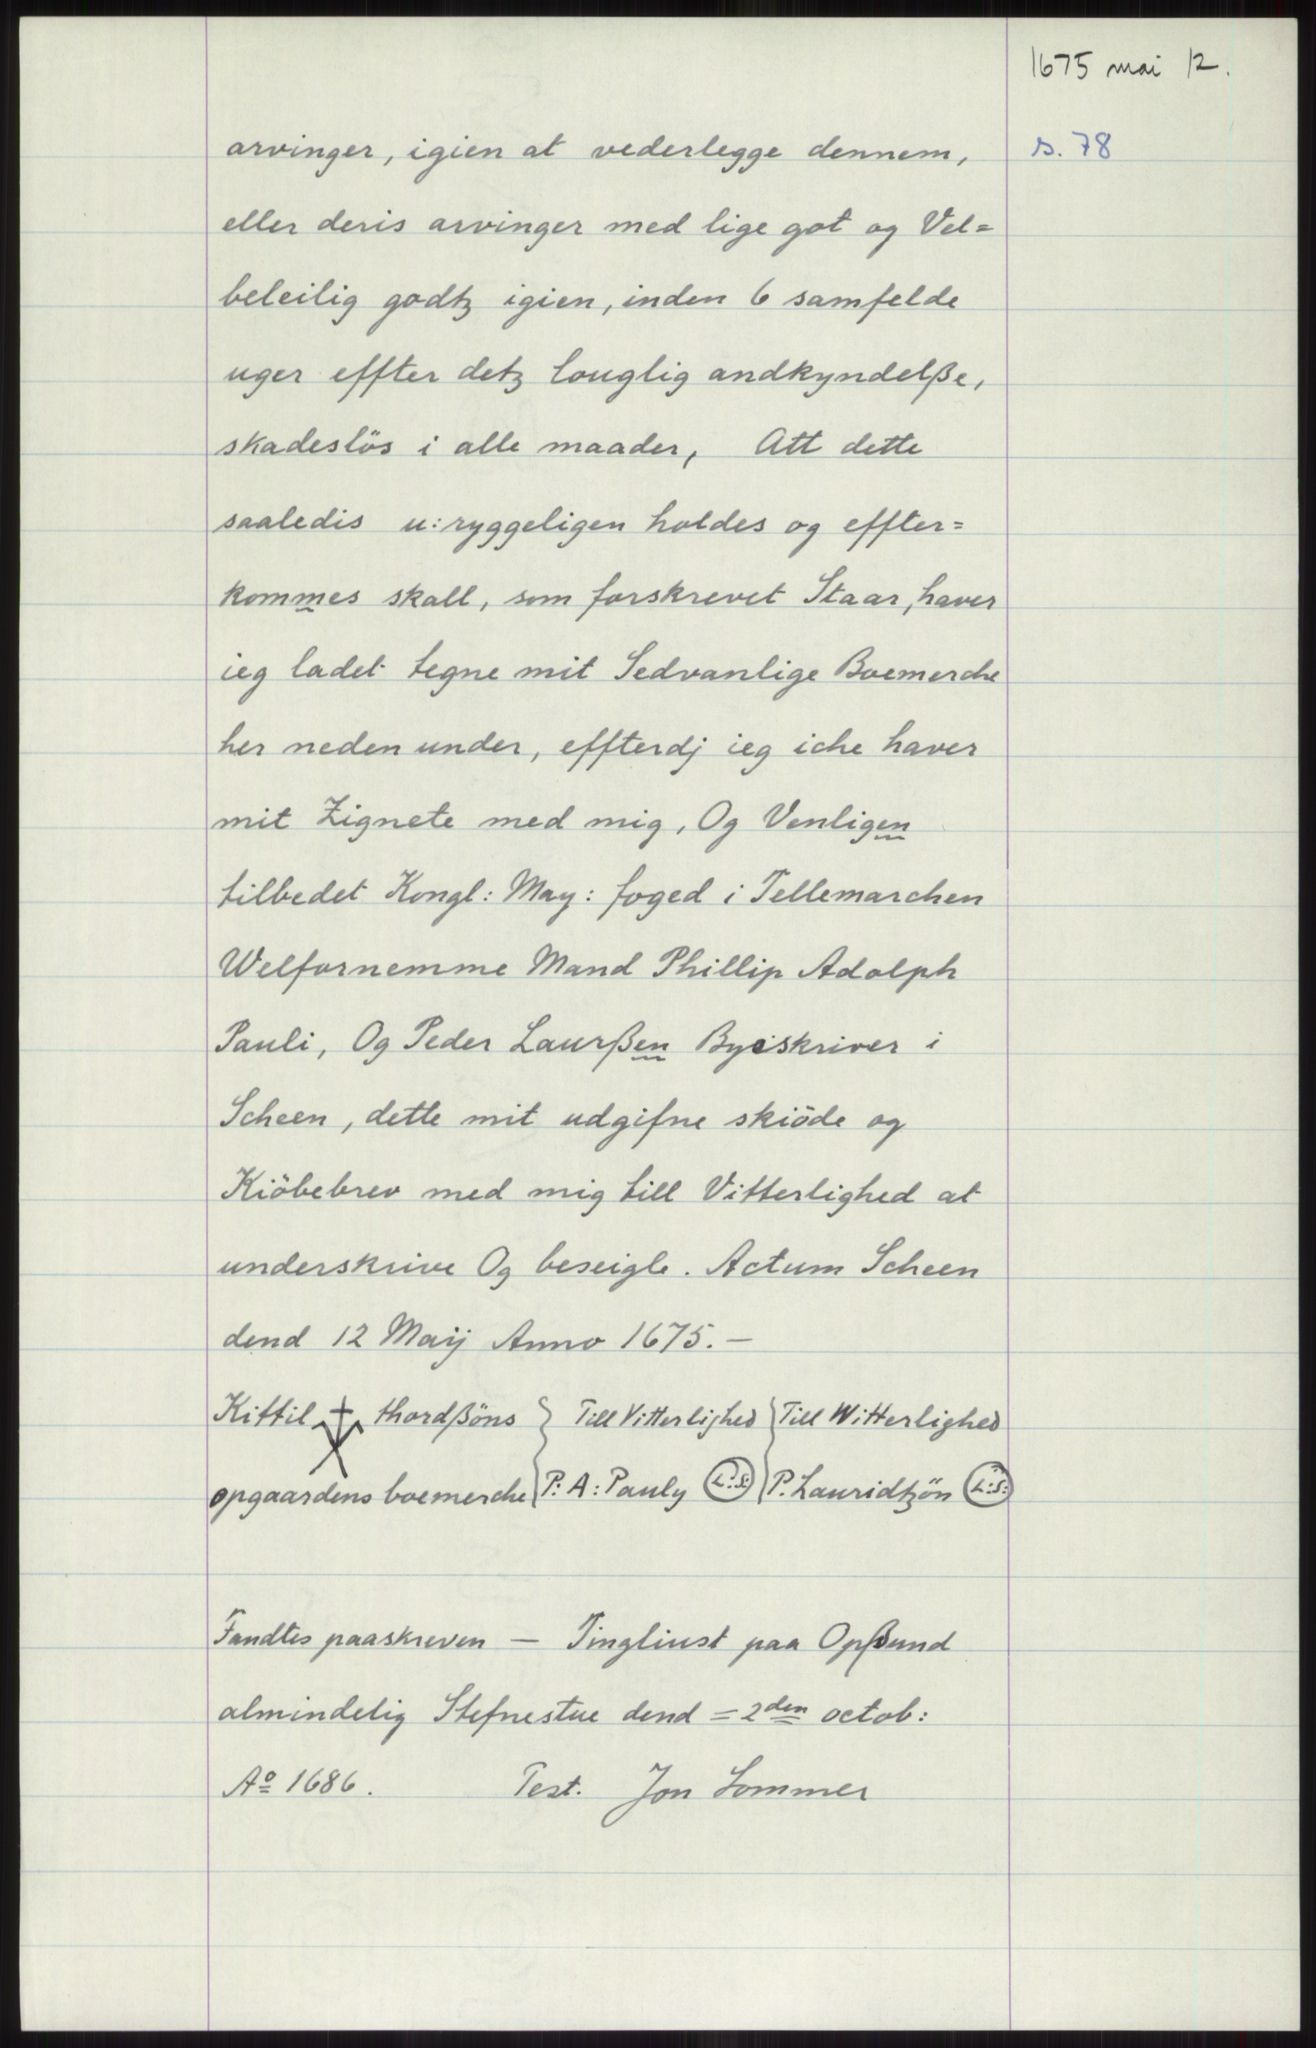 1675 mai 12.
s. 78
arvinger, igien at vederlegge dennem,
eller deris arvinger med lige got og Vel=
beleilig godtz igien, inden 6 samfelde
uger effter detz louglig andkyndelße,
skadesløs i alle maader, Att dette
saaledis u:ryggeligen holdes og effter=
kommes skall, som forskrevet Staar, haver
ieg ladet tegne mit Sedvanlige Boemerche
her neden under, effterdj ieg iche haver
mit Zignete med mig, Og Venligen
tilbedet Kongl: May: foged i Tellemarchen
Welfornemme Mand Phillip Adolph
Pauli, Og Peder Laurßen Byeskriver i
Scheen, dette mit udgifne skiöde og
Kiöbebrev med mig till Vitterlighed at
underskrive Og beseigle. Actum Scheen
dend 12 Maij Anno 1675.—
Kittil thordßöns } Till Vitterlighed } Till Witterlighed
opgaardens boemerche } P: A: Pauly L:S: } P. Lauridtzön L:S:
Fandtes paaskreven — Tingliust paa Opßund
almindelig Stefnestue dend = 2den octob:
Ao 1686. Test. Jon Sommer